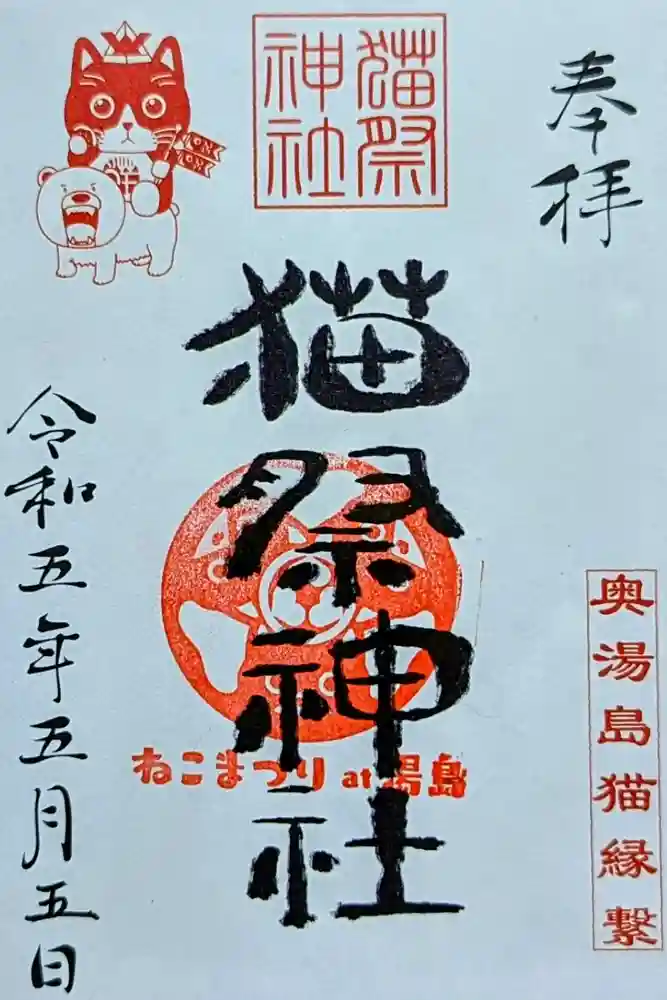 奉拝
猫祭
神社
猫祭神社
ねこまつり at 湯島
奥湯島猫縁繋
令和五年五月五日